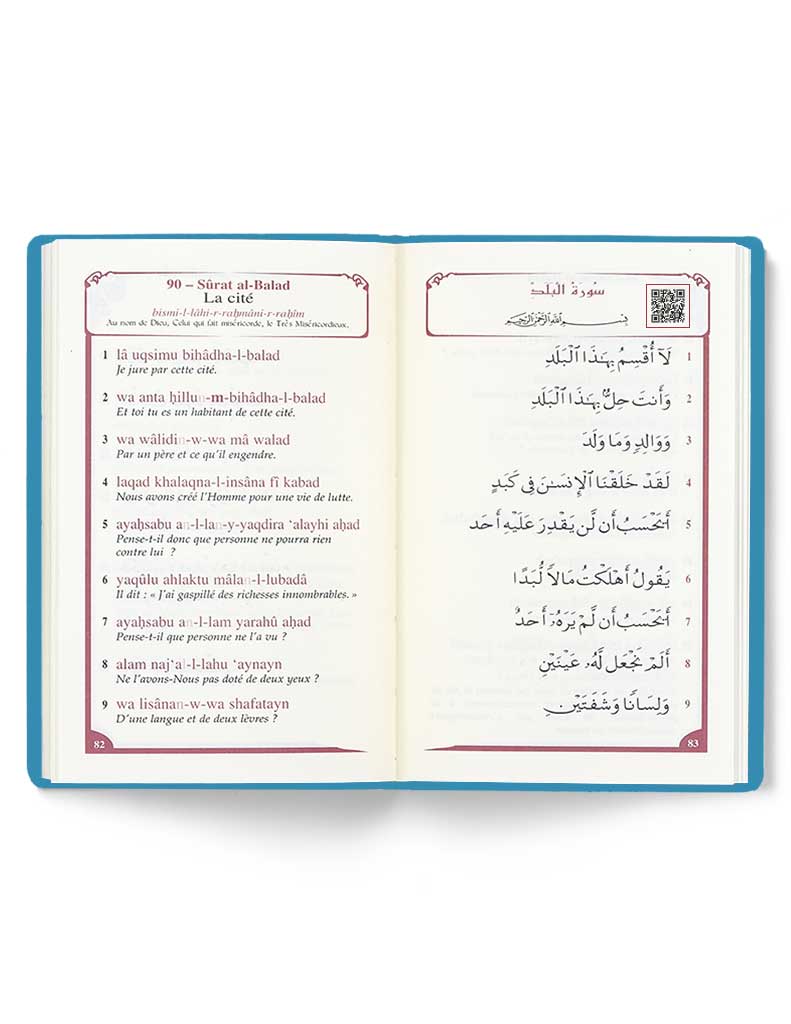 90 – Sûrat al-Balad
La cité
bismi-l-lâhi-r-raḥmâni-r-raḥîm
Au nom de Dieu, Celui qui fait miséricorde, le Très Miséricordieux.
1 lâ uqsimu bihâdha-l-balad
Je jure par cette cité.
2 wa anta ḥillun-m-bihâdha-l-balad
Et toi tu es un habitant de cette cité.
3 wa wâlidin-w-wa mâ walad
Par un père et ce qu'il engendre.
4 laqad khalaqna-l-insâna fî kabad
Nous avons créé l'Homme pour une vie de lutte.
5 ayaḥsabu an-l-lan-y-yaqdira 'alayhi aḥad
Pense-t-il donc que personne ne pourra rien
contre lui ?
6 yaqûlu ahlaktu mâlan-l-lubadâ
Il dit : « J'ai gaspillé des richesses innombrables. »
7 ayaḥsabu an-l-lam yarahû aḥad
Pense-t-il que personne ne l'a vu ?
8 alam naj'al-l-lahu 'aynayn
Ne l'avons-Nous pas doté de deux yeux ?
9 wa lisânan-w-wa shafatayn
D'une langue et de deux lèvres ?
82
سُورَةُ الْبَلَدِ
بِسْمِ اللَّهِ الرَّحْمَٰنِ الرَّحِيمِ
لَآ أُقْسِمُ بِهَـٰذَا ٱلْبَلَدِ 1
وَأَنتَ حِلٌّۢ بِهَـٰذَا ٱلْبَلَدِ 2
وَوَالِدٍ وَمَا وَلَدَ 3
لَقَدْ خَلَقْنَا ٱلْإِنسَـٰنَ فِى كَبَدٍ 4
أَيَحْسَبُ أَن لَّن يَقْدِرَ عَلَيْهِ أَحَدٌ 5
يَقُولُ أَهْلَكْتُ مَالًا لُّبَدًا 6
أَيَحْسَبُ أَن لَّمْ يَرَهُۥٓ أَحَدٌ 7
أَلَمْ نَجْعَل لَّهُۥ عَيْنَيْنِ 8
وَلِسَانًا وَشَفَتَيْنِ 9
83